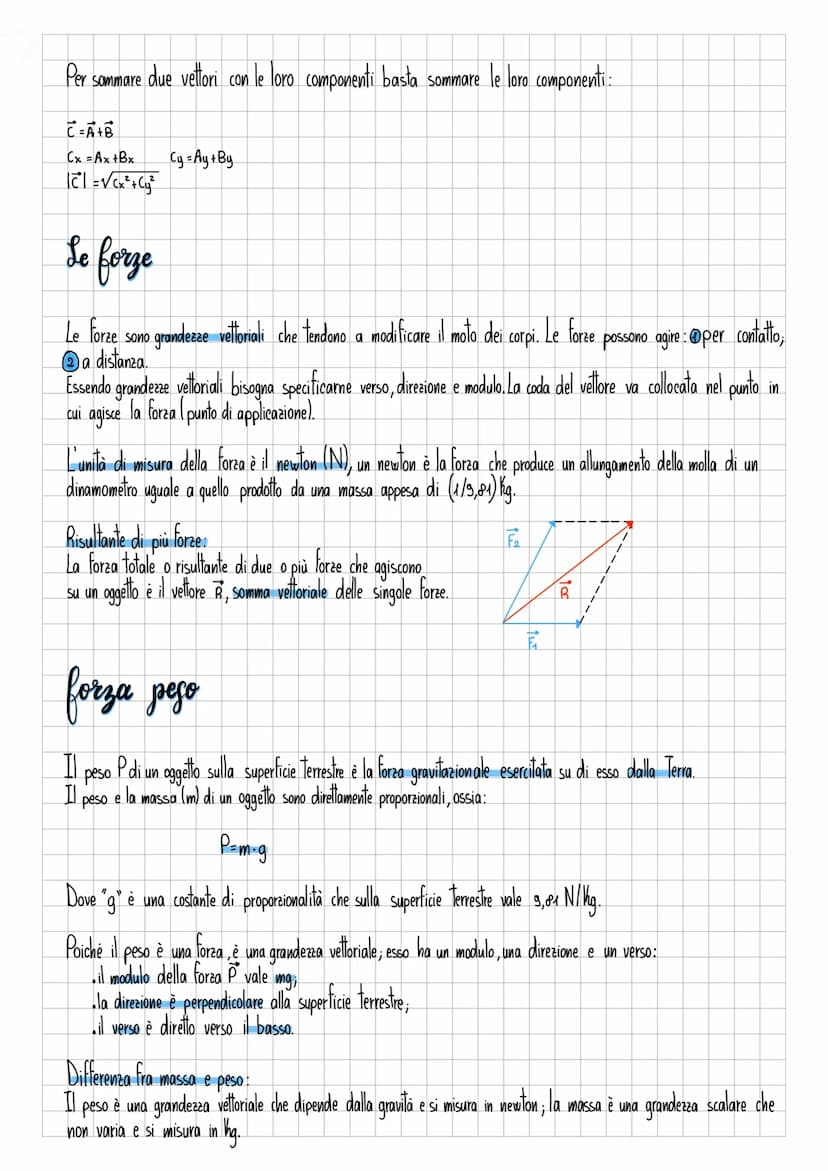 Per sommare due vettori con le loro componenti basta sommare le loro componenti:
C⃗ = A⃗ + B⃗
Cx = Ax + Bx    Cy = Ay + By
|C⃗| = √Cx² + Cy²
Le forze
Le forze sono grandezze vettoriali che tendono a modificare il moto dei corpi. Le forze possono agire: ① per contatto;
② a distanza.
Essendo grandezze vettoriali bisogna specificarne verso, direzione e modulo. La coda del vettore va collocata nel punto in
cui agisce la forza (punto di applicazione).
L'unità di misura della forza è il newton (N), un newton è la forza che produce un allungamento della molla di un
dinamometro uguale a quello prodotto da una massa appesa di (1/9,81) Kg.
Risultante di più forze:
La forza totale o risultante di due o più forze che agiscono
su un oggetto è il vettore R⃗, somma vettoriale delle singole forze.
F⃗₂
R⃗
F⃗₁
forza peso
Il peso P di un oggetto sulla superficie terrestre è la forza gravitazionale esercitata su di esso dalla Terra.
Il peso e la massa (m) di un oggetto sono direttamente proporzionali, ossia:
P=m·g
Dove "g" è una costante di proporzionalità che sulla superficie terrestre vale 9,81 N/Kg.
Poiché il peso è una forza, è una grandezza vettoriale; esso ha un modulo, una direzione e un verso:
.il modulo della forza P⃗ vale mg;
.la direzione è perpendicolare alla superficie terrestre;
.il verso è diretto verso il basso.
Differenza fra massa e peso:
Il peso è una grandezza vettoriale che dipende dalla gravità e si misura in newton; la massa è una grandezza scalare che
non varia e si misura in Kg.